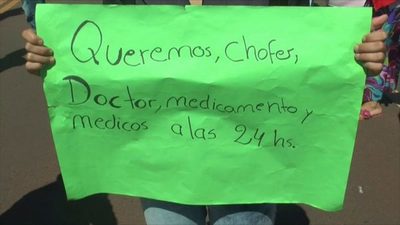 Queremos, chofer,
Doctor, medicamento y
medicos a las 24 hs.